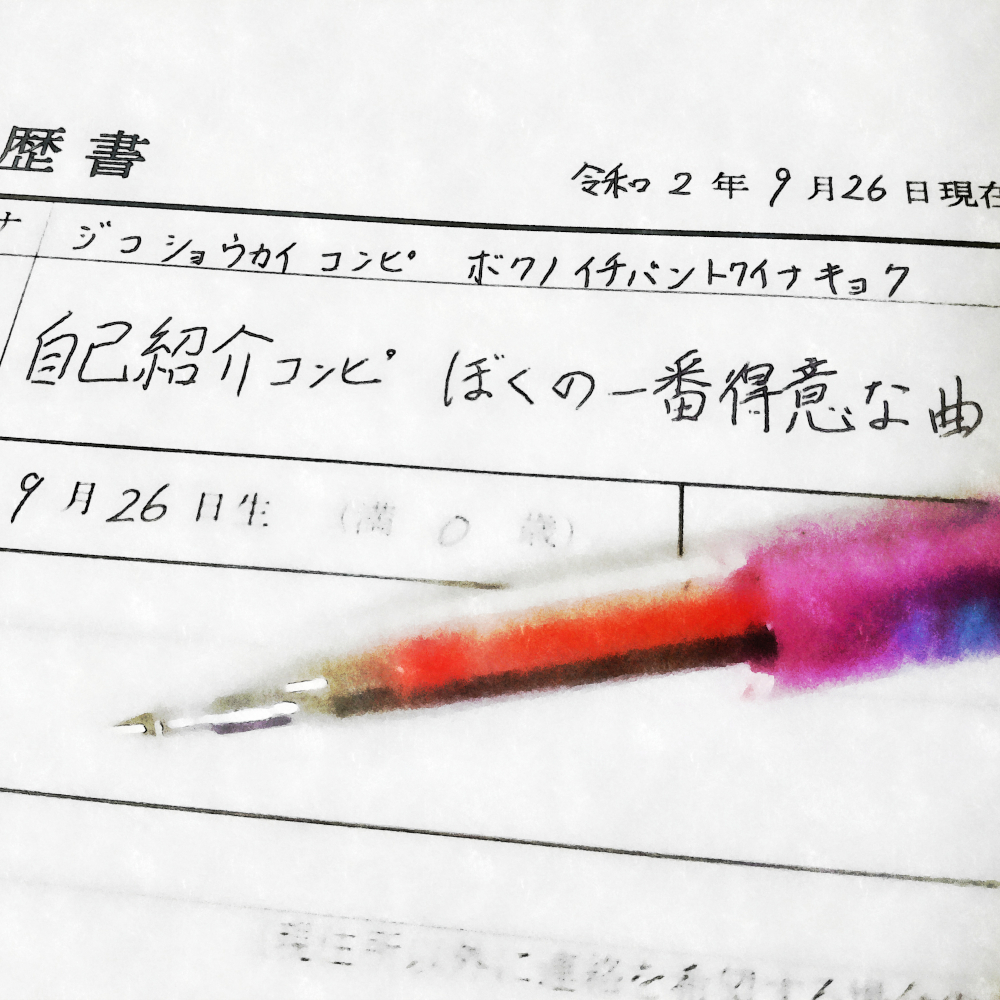 歴書
令和2年9月26日現在
ナ ジコショウカイコンピ ボクノイチバントクイナキョク
自己紹介コンピ ぼくの一番得意な曲
9月26日生 (満0歳)